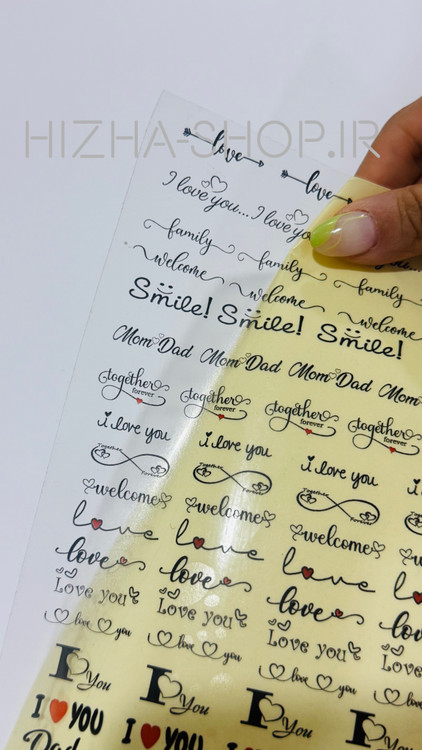 HIZHA-SHOP.IR
love love
I love you... I love you...
family family family
welcome welcome welcome
Smile! Smile! Smile!
Mom Dad Mom Dad Mom Dad Mom
together forever together forever together forever together forever
i love you i love you i love you i
Together Forever Together Forever Together Forever
welcome welcome welcome
love love love
love love love
Love you Love you Love you Love
love you love you love you
I You I You I You I
I YOU I YOU I
Dad